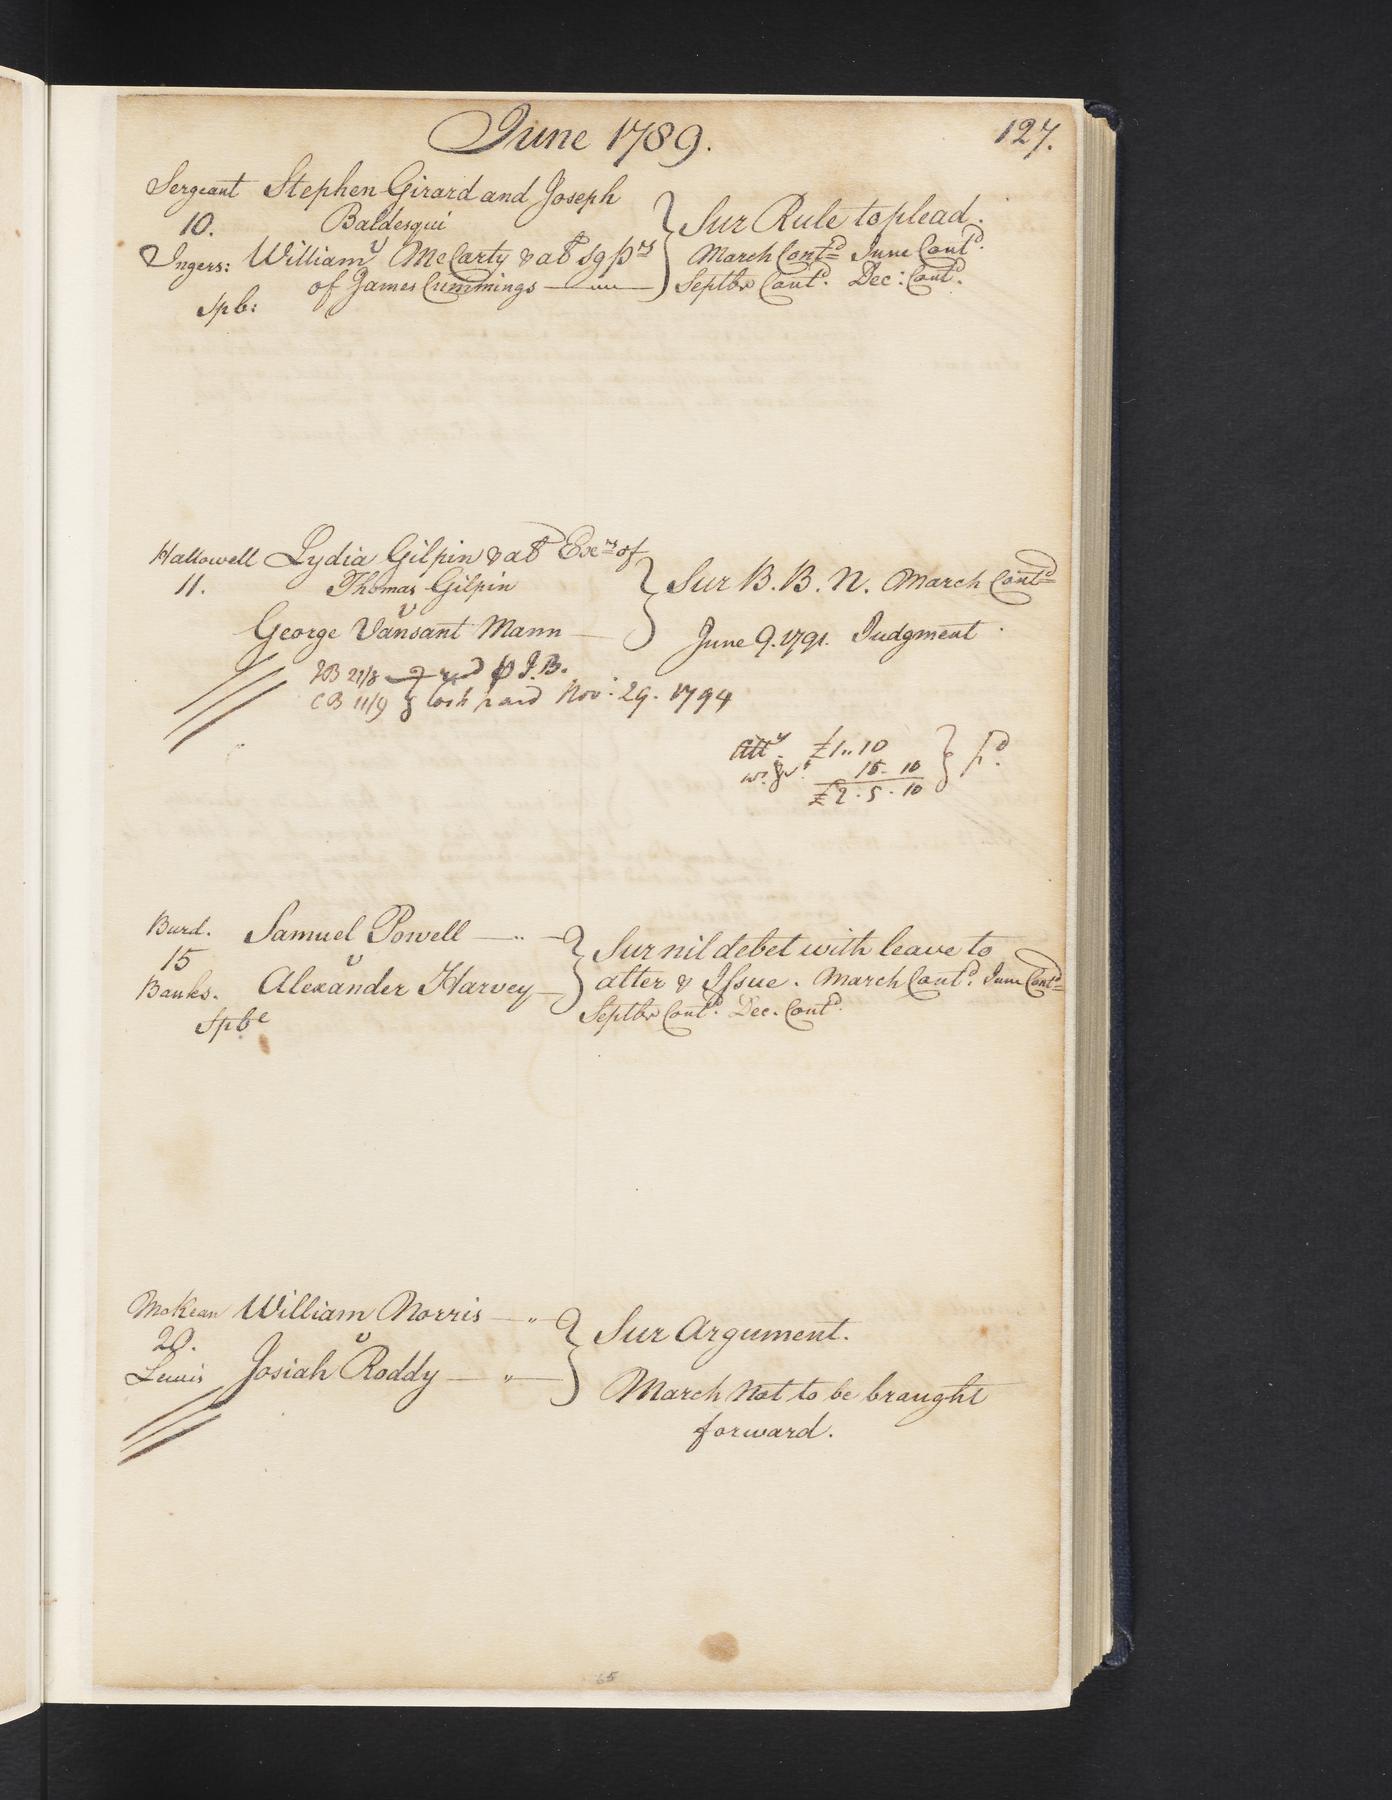 June 1789.
127.
Sergeant Stephen Girard and Joseph
10. Baldesqui
v
Ingers: William McCarty & al sg prs
of James Cummings
Spb:
Sur Rule to plead.
March Contd June Contd.
Septbr Contd. Dec: Contd.
Hallowell Lydia Gilpin & al Exrs of
11. Thomas Gilpin
v
George Vansant Mann
Sur B. B. N. March Contd
June 9. 1791. Judgment.
JB 21/8 p J.B.
CB 11/9 Cosh paid Nov: 29. 1794
Atty. £1..10
15. 10
£2. 5. 10
Pd.
Burd. Samuel Powell
15 v
Banks. Alexander Harvey
Spbe
Sur nil debet with leave to
alter & Issue. March Contd. June Contd
Septbr Contd. Dec. Contd.
McKean William Norris
20. v
Lewis Josiah Roddy
Sur Argument.
March Not to be braught
forward.
65